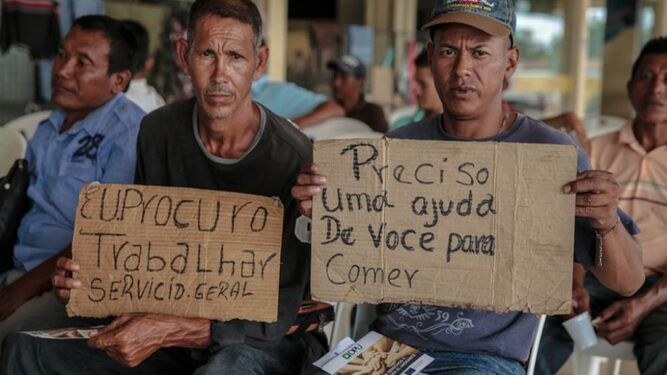 EU.PROCURO
Trabalhar
SERVICIO.GERAL
Preciso
uma ajuda
De voce para
Comer
28